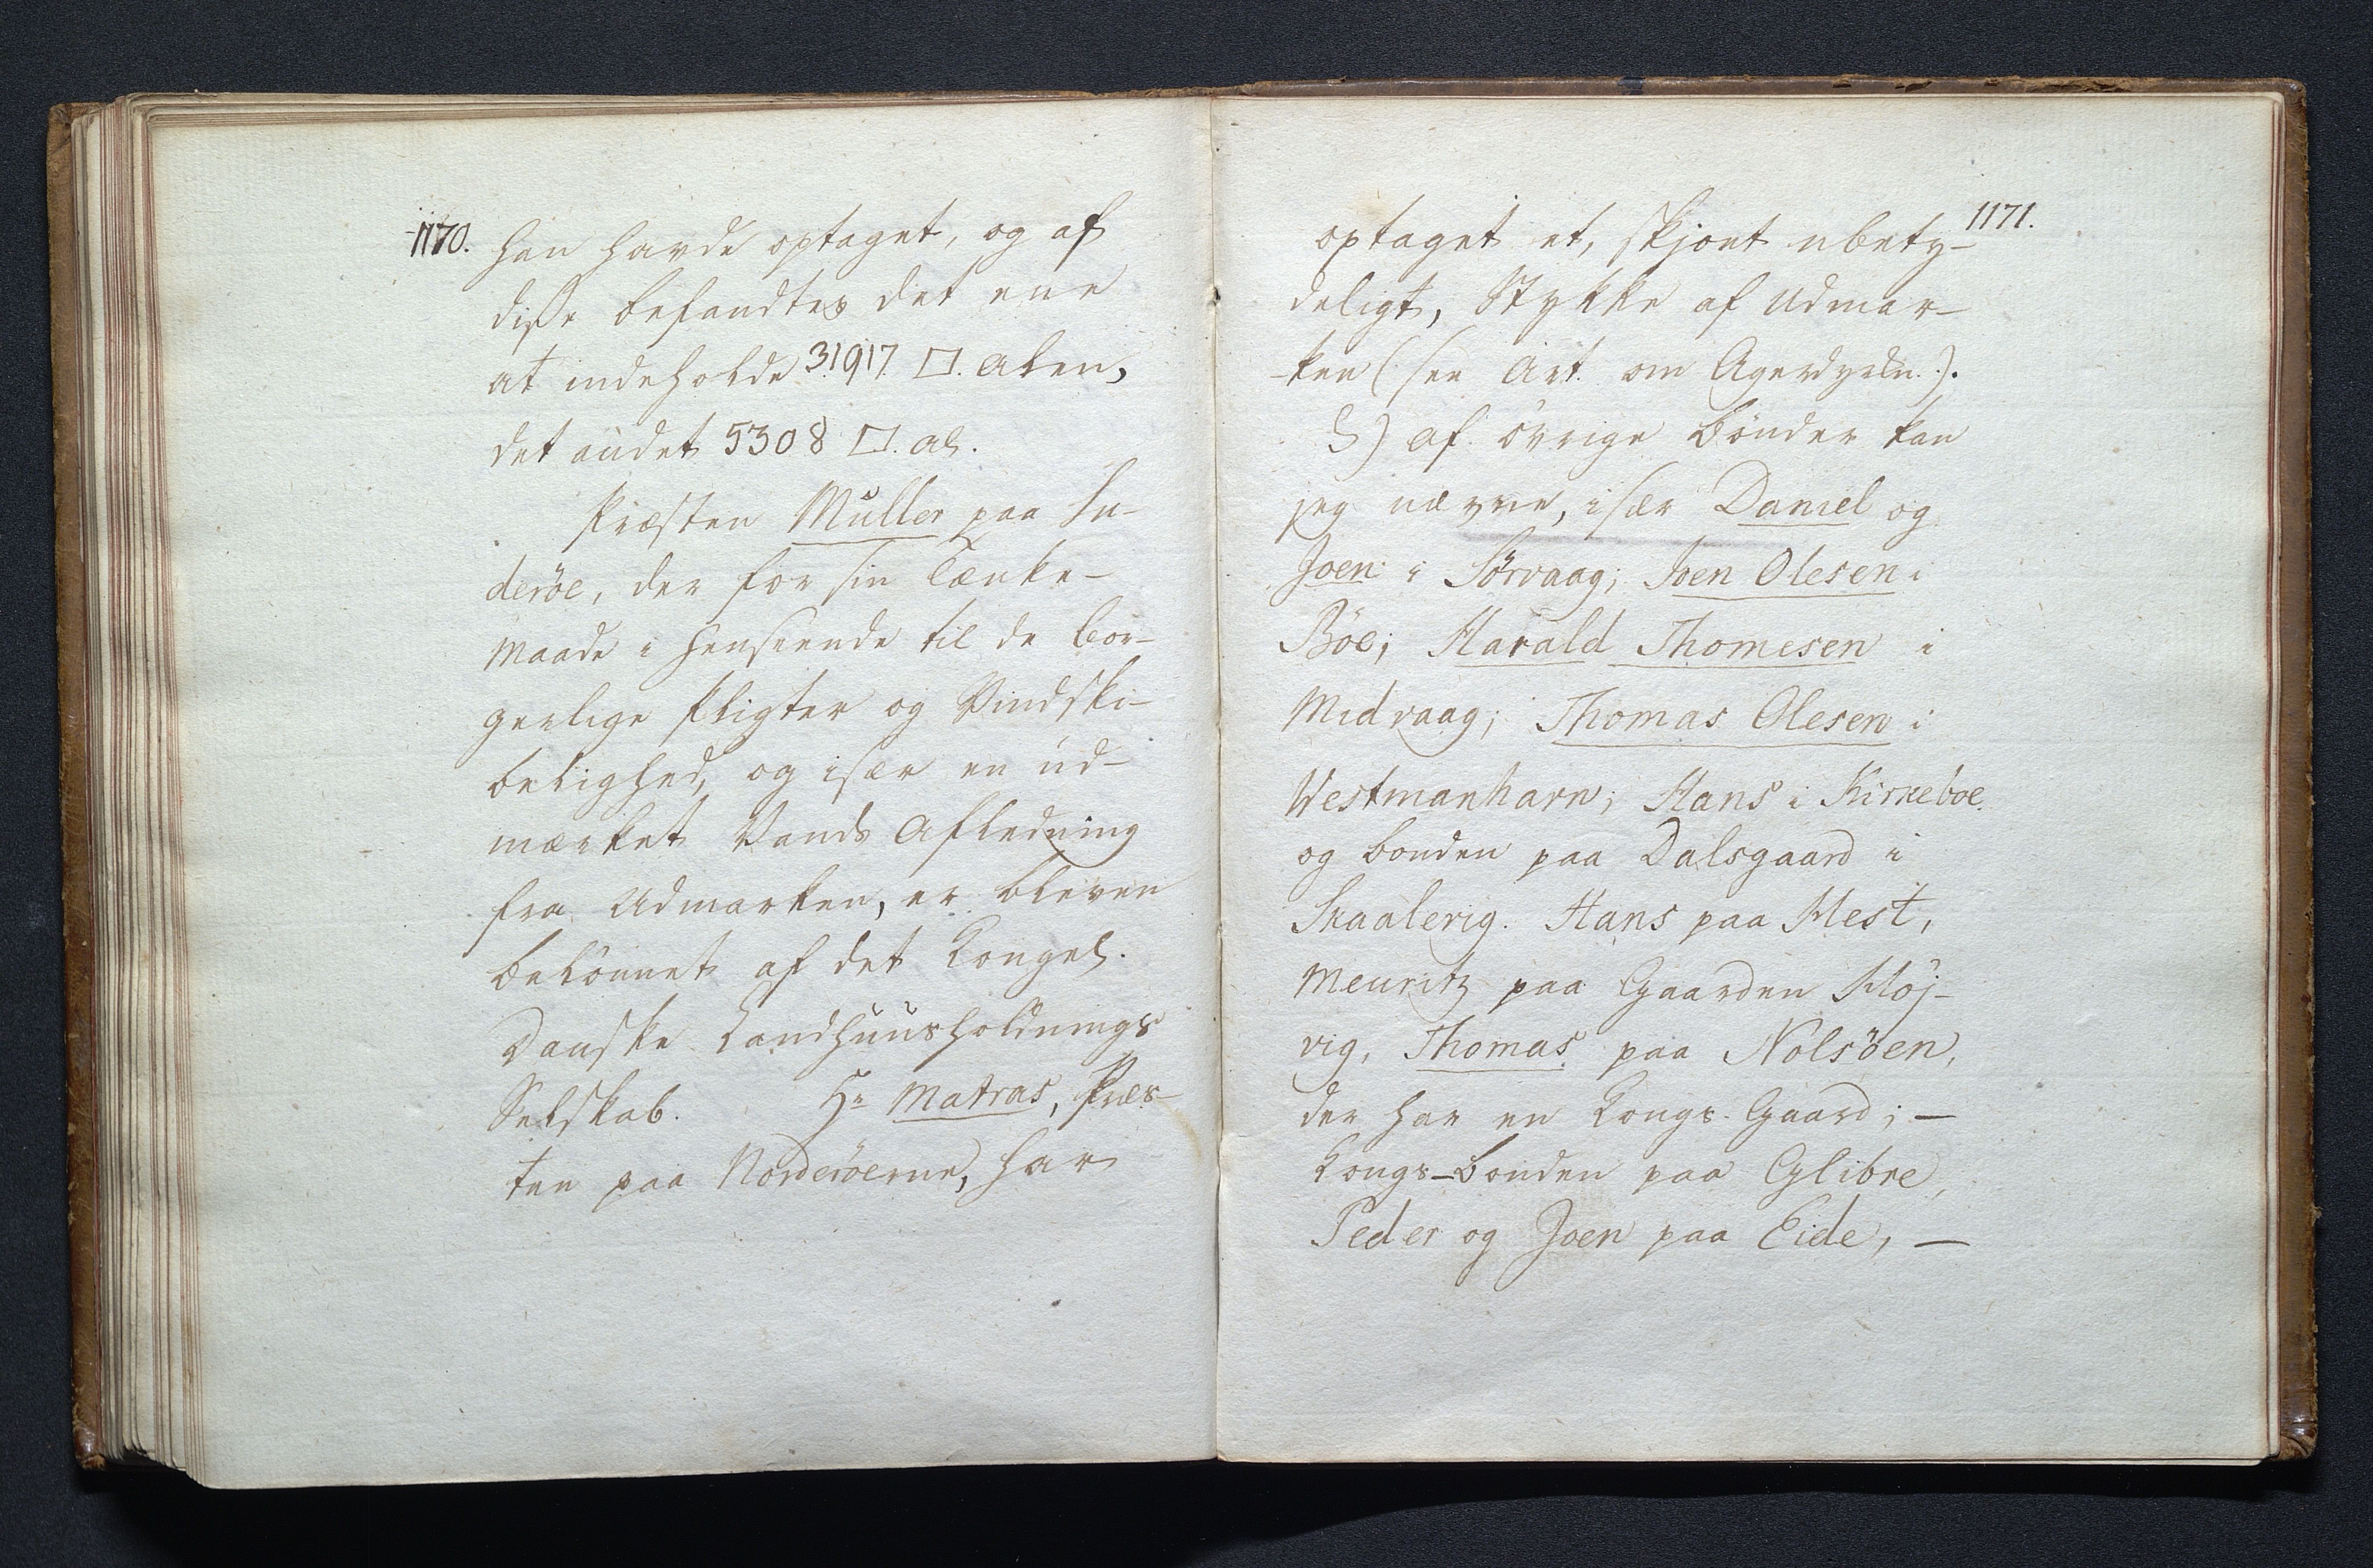 1170. han havde optaget, og af
disse befandtes det ene
at indeholde 31917 □. Alen,
det andet 5308 □. al.
Præsten Müller paa Su-
deröe, der for sin Tænke-
maade i Henseende til de bor-
gerlige Pligter og Vindski-
belighed, og især en ud-
mærket Vands Afledning
fra Udmarken, er bleven
belönnet af det Kongel.
Danske Landhuusholdnings
Selskab. Hr Matras, Præs-
ten paa Norderöerne, har
1171.
optaget et, skjønt ubety-
deligt, Stykke af Udmar-
-ken (see Art. om Agerdyrkn.).
af övrige Bönder kan
jeg nævne, især Daniel og
Joen i Sörvaag; Joen Olesen i
Böe; Harald Thomesen i
Midvaag; Thomas Olesen i
Westmanharn; Hans i Kirkeboe
og Bonden paa Dalsgaard i
Skaalevig. Hans paa Hest,
Meuritz paa Gaarden Höj-
vig, Thomas paa Nolsöen,
der har en Kongs-Gaard; —
Kongs-Bonden paa Glibre,
Peder og Joen paa Eide, —